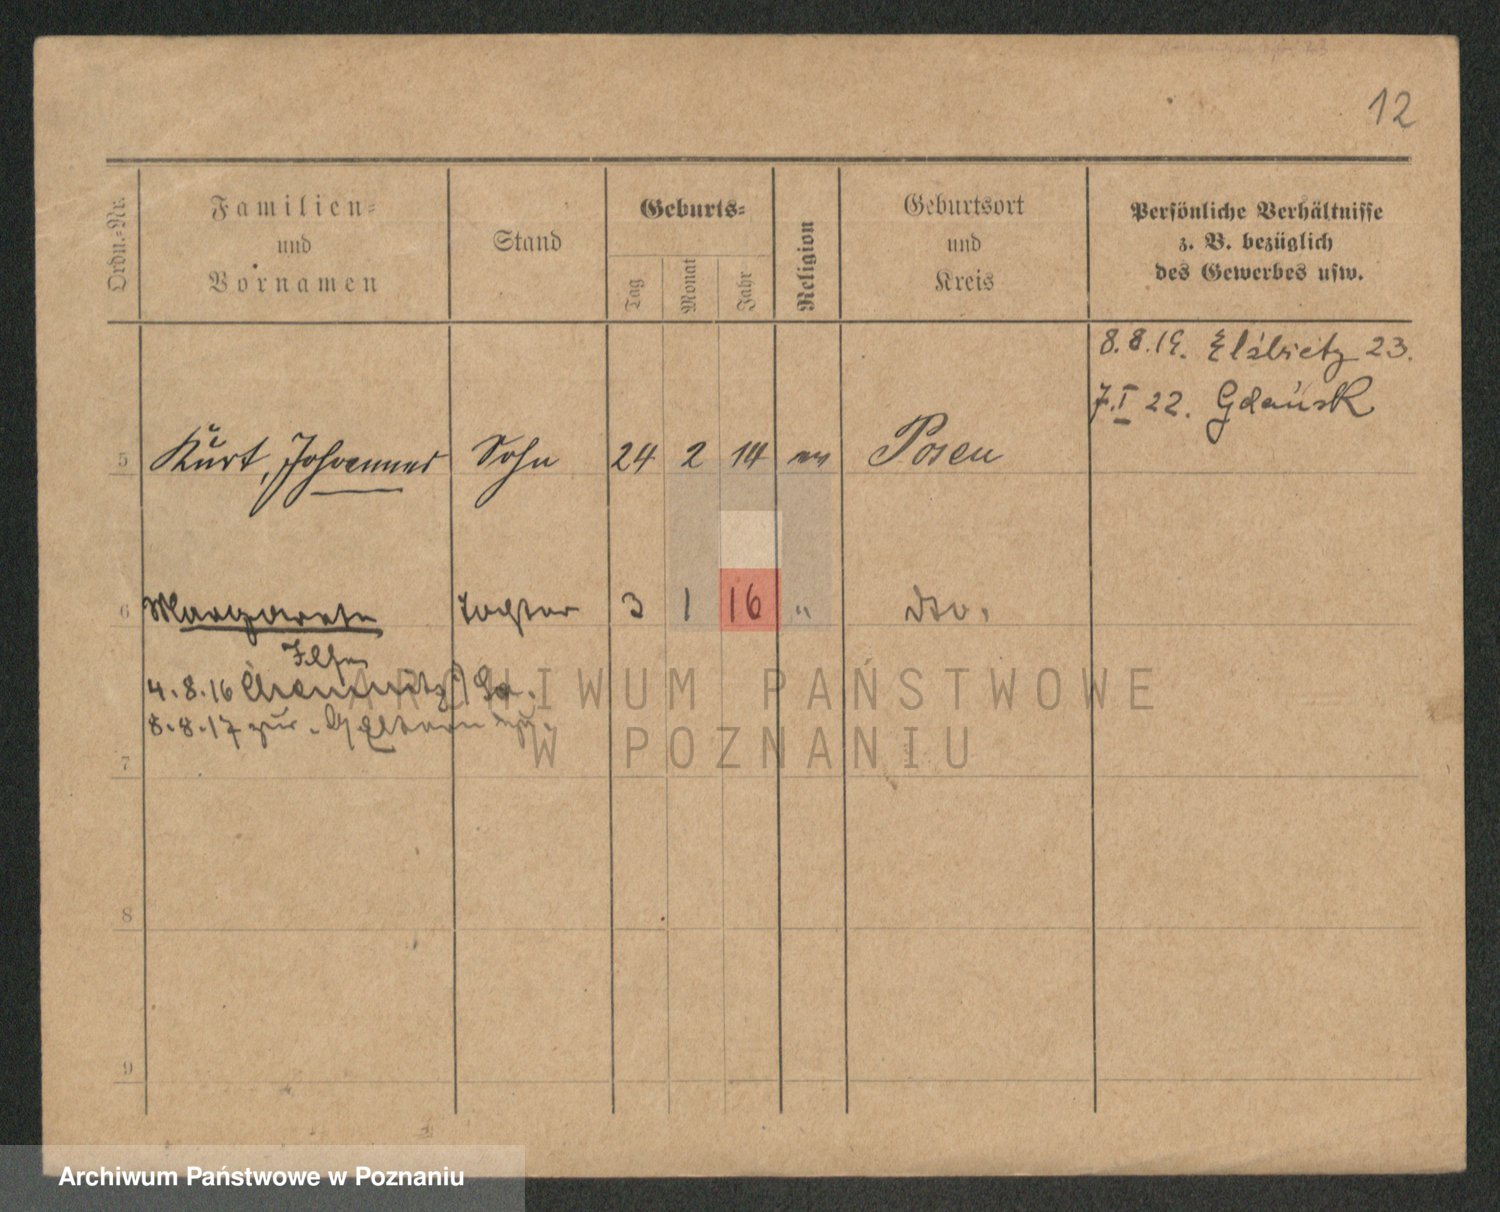 12
Ordn.-Nr.
Familien-
und
Vornamen
Stand
Geburts-
Tag
Monat
Jahr
Religion
Geburtsort
und
Kreis
Persönliche Verhältnisse
z. B. bezüglich
des Gewerbes usw.
8.8.19. Elżbiety 23.
7.I 22. Gdańsk
5 Kurt, Johannes Sohn 24 2 14 ev Posen
6 Margarete Tochter 3 1 16 " dto.
Ilse
4.8.16 Chemnitz
8.8.17 zur. Eltern
7
8
9
ARCHIWUM PAŃSTWOWE
W POZNANIU
Archiwum Państwowe w Poznaniu